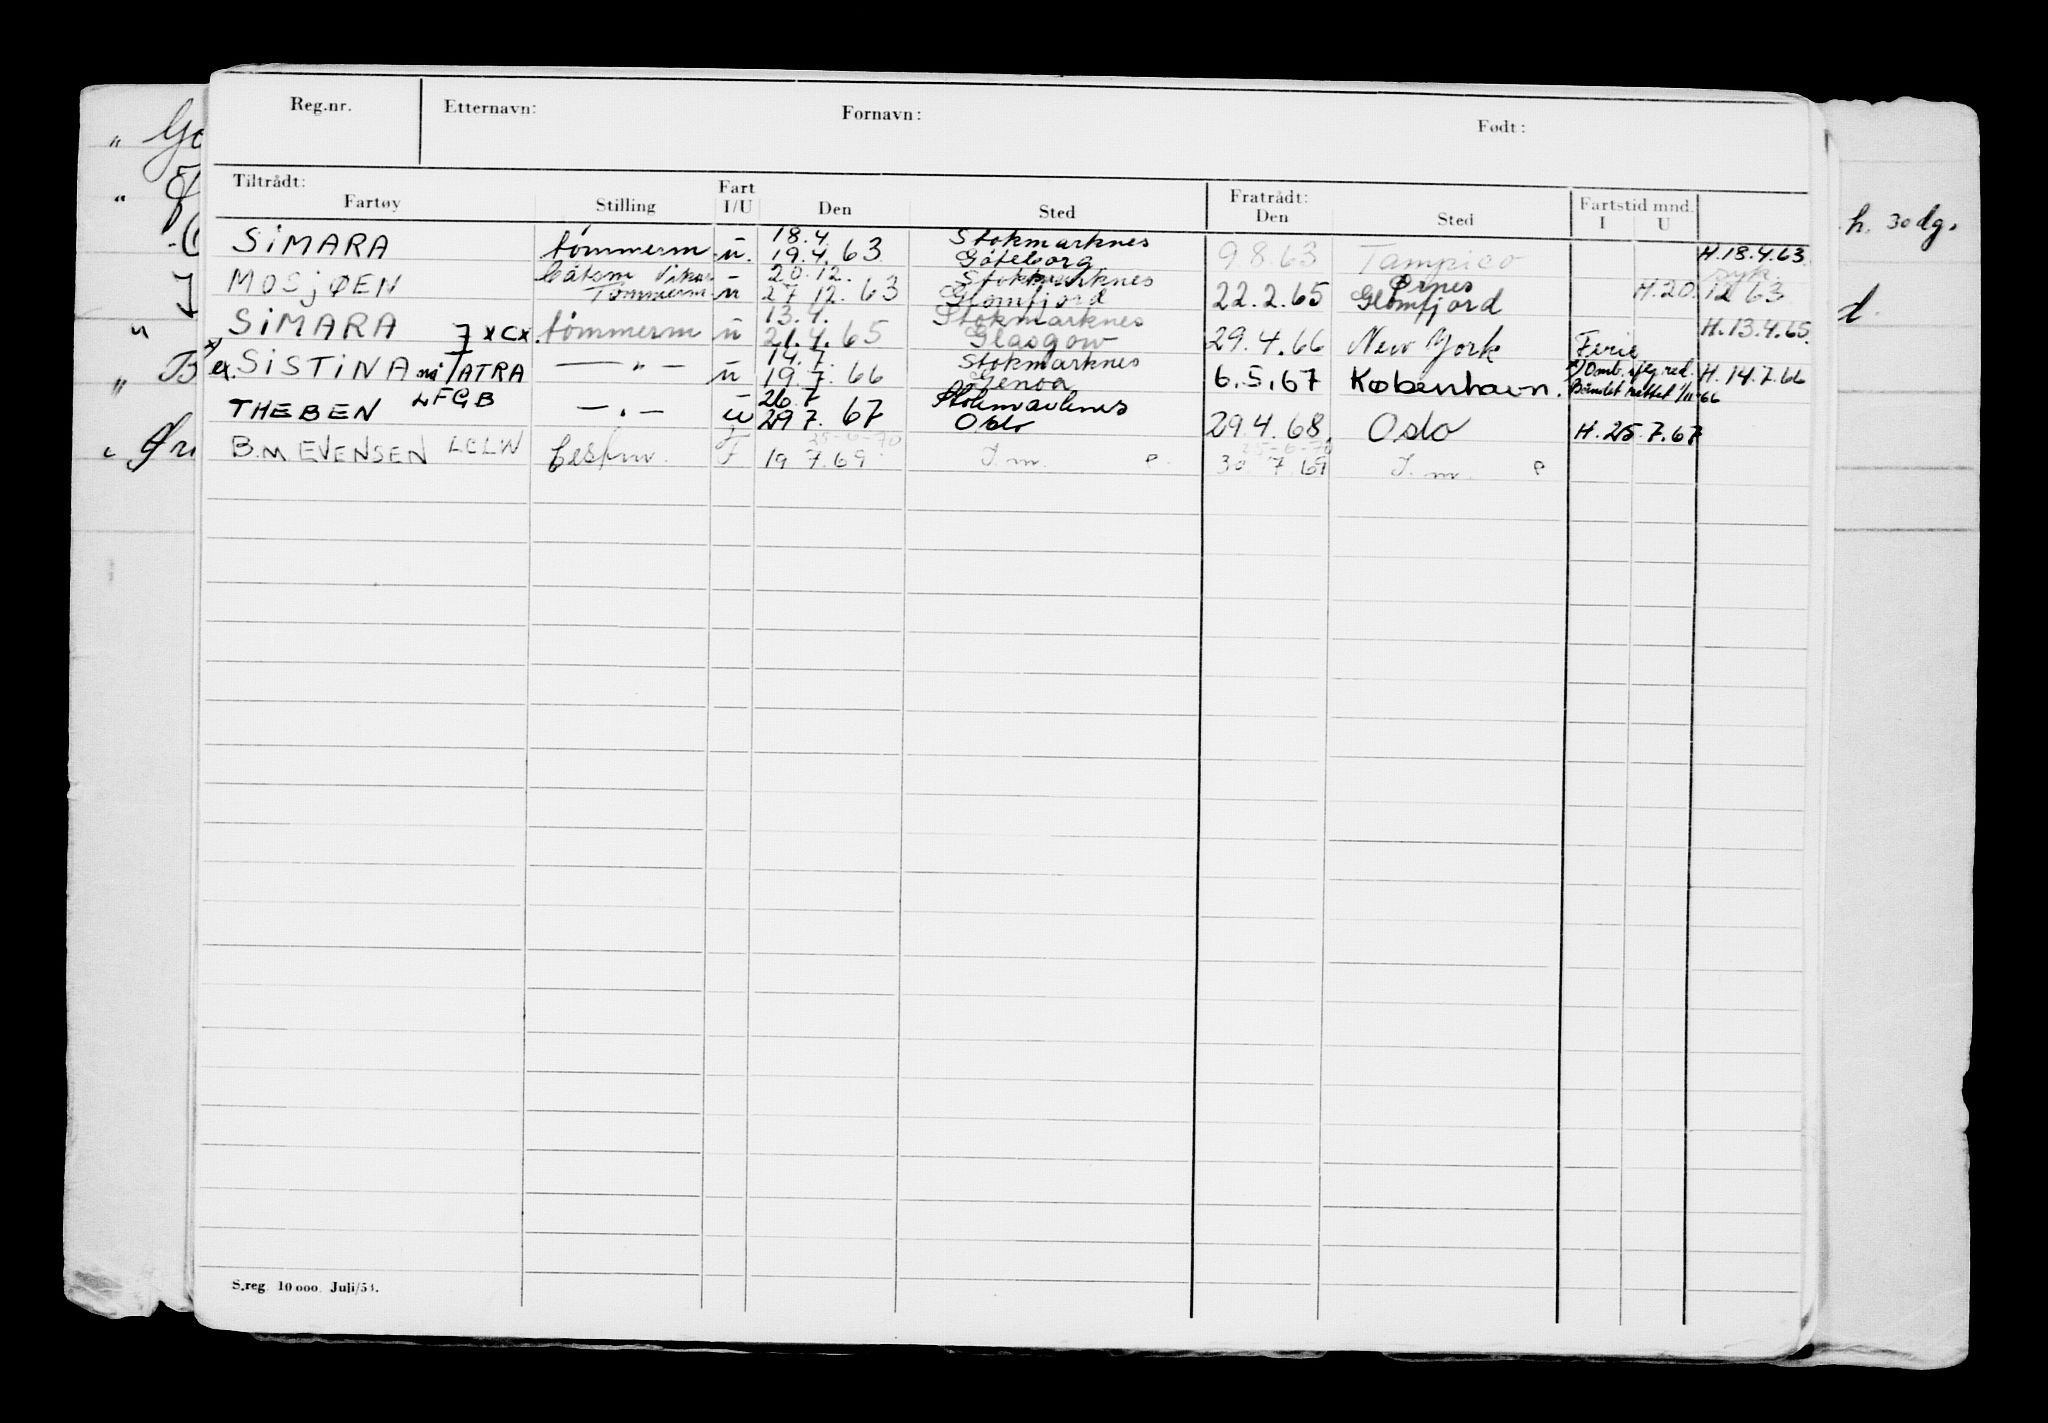 Reg.nr. Etternavn: Fornavn: Født:
Tiltrådt: Fartøy Stilling Fart I/U Den Sted Fratrådt: Den Sted Fartstid mnd. I U
SiMARA tømmerm u. 18.4. 19.4.63 Stokmarknes Gøteborg 9 8.63 Tampico H.18.4.63. syk.
MOSjØEN Båtsm Vikar Tømmerm u 20.12. 27 12.63 Stokmarknes Glomfjord 22.2.65 Ørnes Glomfjord H.20.12 63
SiMARA JXCX. tømmerm u 13.4. 21.4.65 Stokmarknes Glasgow 29.4.66 New York Ferie H.13.4.65.
x) ex. SiSTiNA nå TATRA — " — u 14.7. 19.7.66 Stokmarknes Genoa 6.5.67 København. H.14.7.66
THEBEN LFGB — " — u 26.7 29 7.67 Oslo 29.4.68. Oslo H.25.7.67
B.M EVENSEN LCLW F 25-6-70 19 7.69 I.m. e. 25-6-70 30 7.69 I.m. e
S.reg. 10 000. Juli/54.
h. 30 dg.